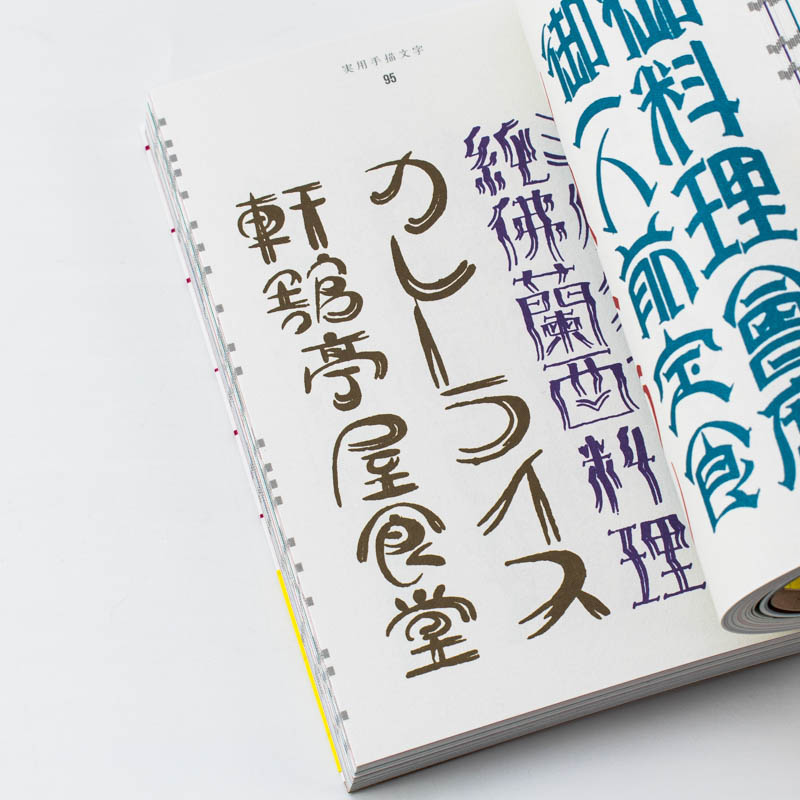 実用手描文字
95
御料理
御一人前定食
純佛蘭西料理
カレーライス
軒舘亭屋食堂